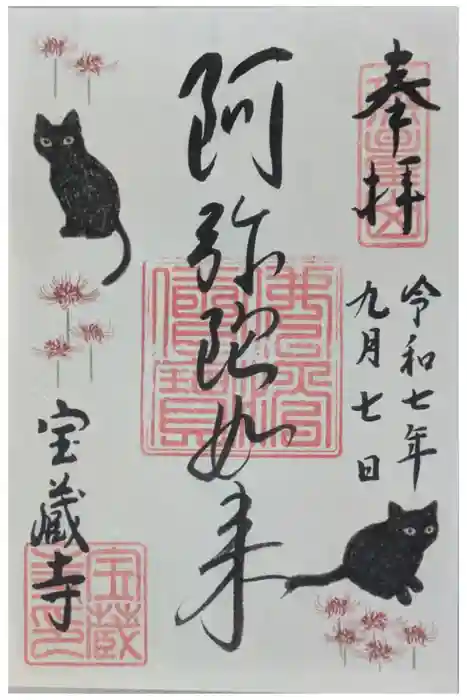 奉拝
令和七年
九月七日
阿弥陀如来
宝蔵寺